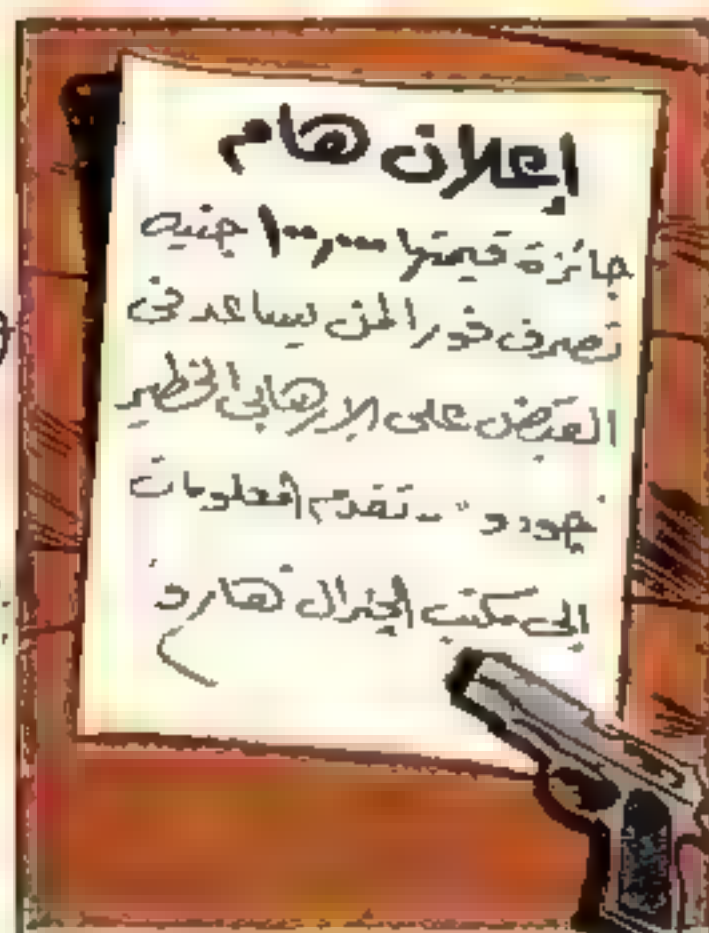 إعلان هام
جائزة قيمتها ١٠٠,٠٠٠ جنيه
تصرف فورا لمن يساعد فى
القبض على الإرهابى الخطير
"جودو" .. تقدم المعلومات
إلى مكتب الجنرال "هارد"